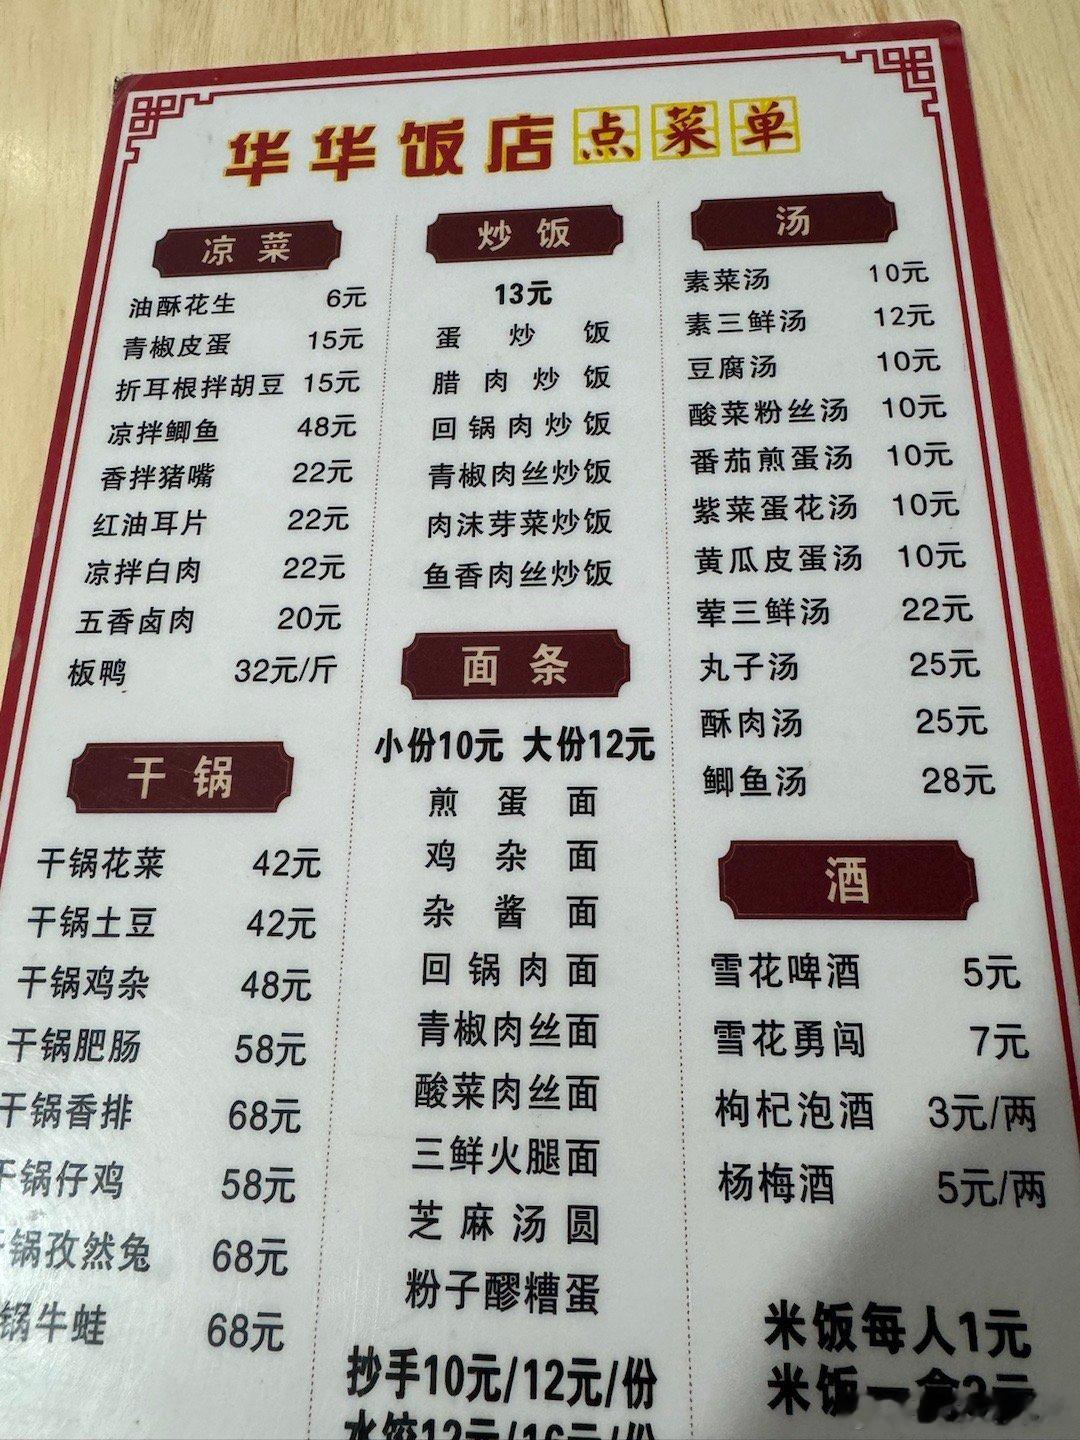 华华饭店点菜单
凉菜
油酥花生 6元
青椒皮蛋 15元
折耳根拌胡豆 15元
凉拌鲫鱼 48元
香拌猪嘴 22元
红油耳片 22元
凉拌白肉 22元
五香卤肉 20元
板鸭 32元/斤
干锅
干锅花菜 42元
干锅土豆 42元
干锅鸡杂 48元
干锅肥肠 58元
干锅香排 68元
干锅仔鸡 58元
干锅孜然兔 68元
锅牛蛙 68元
炒饭
13元
蛋炒饭
腊肉炒饭
回锅肉炒饭
青椒肉丝炒饭
肉沫芽菜炒饭
鱼香肉丝炒饭
面条
小份10元 大份12元
煎蛋面
鸡杂面
杂酱面
回锅肉面
青椒肉丝面
酸菜肉丝面
三鲜火腿面
芝麻汤圆
粉子醪糟蛋
抄手10元/12元/份
水饺12元/16元/份
汤
素菜汤 10元
素三鲜汤 12元
豆腐汤 10元
酸菜粉丝汤 10元
番茄煎蛋汤 10元
紫菜蛋花汤 10元
黄瓜皮蛋汤 10元
荤三鲜汤 22元
丸子汤 25元
酥肉汤 25元
鲫鱼汤 28元
酒
雪花啤酒 5元
雪花勇闯 7元
枸杞泡酒 3元/两
杨梅酒 5元/两
米饭每人1元
米饭一盒2元